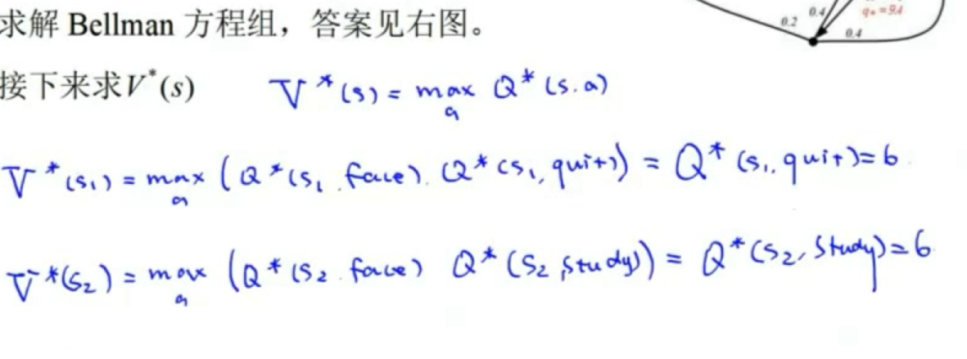 求解 Bellman 方程组，答案见右图。
0.2 0.4 q*=9.4 0.4
接下来求V*(s) V*(s) = max_a Q*(s.a)
V*(s₁) = max_a (Q*(s₁.face). Q*(s₁,quit)) = Q*(s₁.quit)=6
V*(s₂) = max_a (Q*(s₂.face) Q*(s₂,study)) = Q*(s₂,study)=6